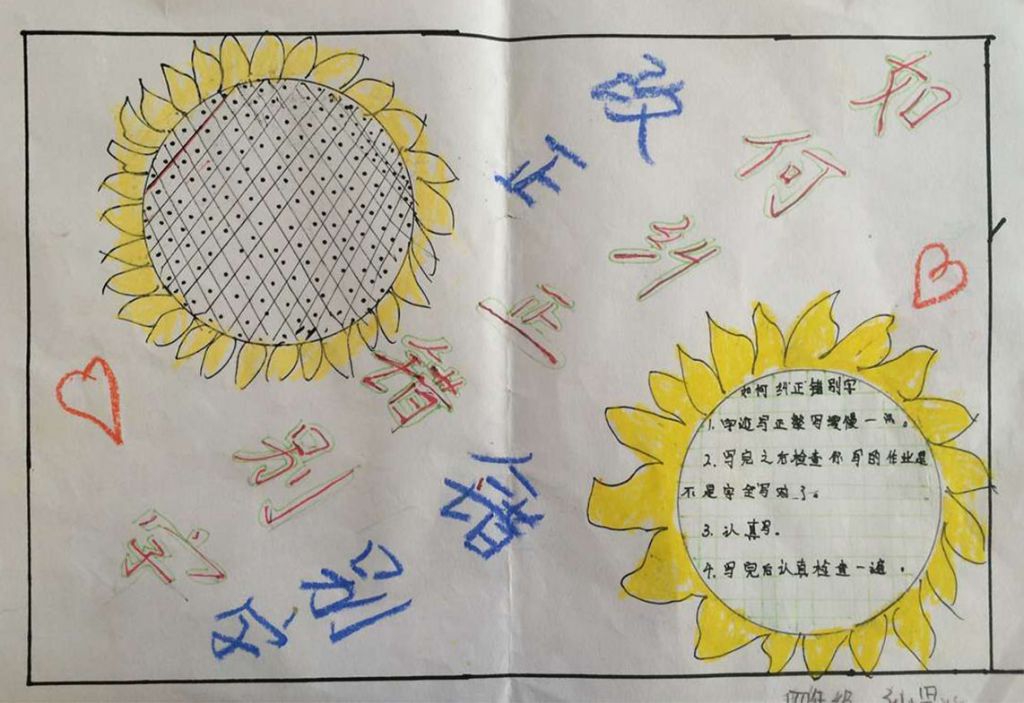 如何纠正错别字
正
错别
如何纠正错别字
1. 字迹写正整写慢一点。
2. 写完之后检查你写的作业是
不是完全写对了。
3. 认真写。
4. 写完后认真检查一遍。